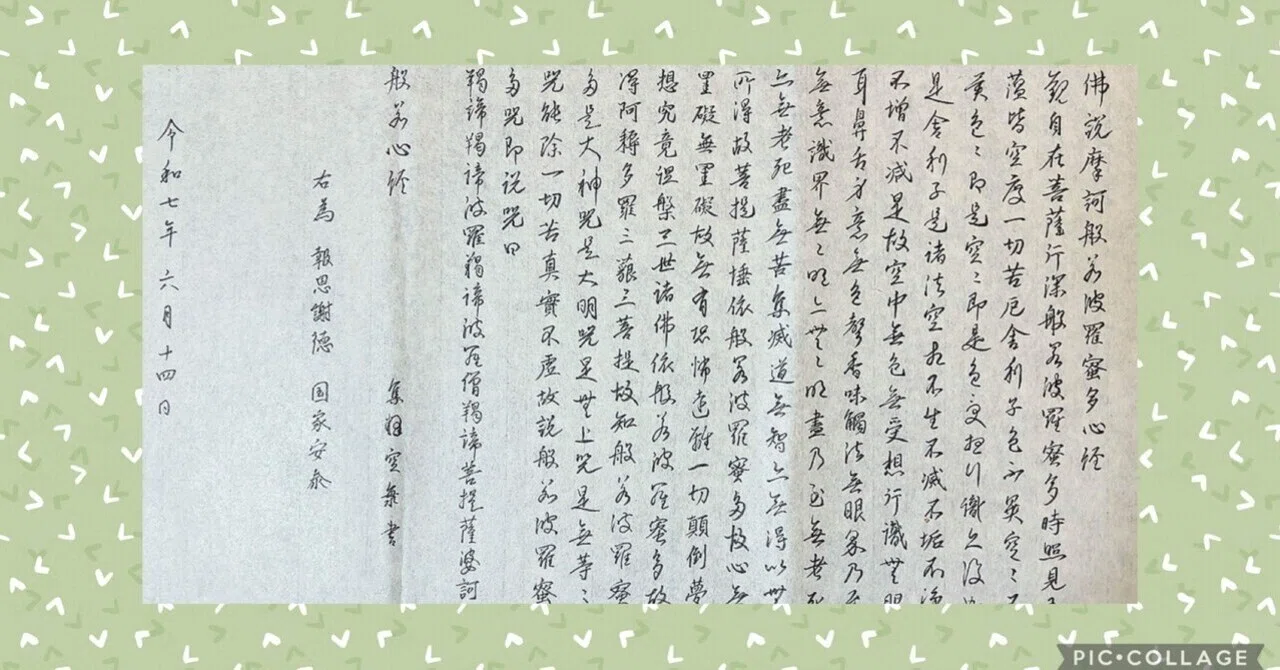 佛説摩訶般若波羅蜜多心経
観自在菩薩行深般若波羅蜜多時照見
蘊皆空度一切苦厄舎利子色不異空々不
異色々即是空々即是色受想行識亦復
是舎利子是諸法空相不生不滅不垢不浄
不増不減是故空中無色無受想行識無眼
耳鼻舌身意無色聲香味觸法無眼界乃至
無意識界無々明亦無々明盡乃至無老死
亦無老死盡無苦集滅道無智亦無得以無
所得故菩提薩埵依般若波羅蜜多故心無
罣礙無罣礙故無有恐怖遠離一切顛倒夢
想究竟涅槃三世諸佛依般若波羅蜜多故
得阿耨多羅三藐三菩提故知般若波羅蜜
多是大神咒是大明咒是無上咒是無等々
咒能除一切苦真實不虚故説般若波羅蜜
多咒即説咒曰
羯諦羯諦波羅羯諦波羅僧羯諦菩提薩婆訶
般若心経
書
右為 報恩謝徳 国家安泰
令和七年 六月十四日
PIC•COLLAGE